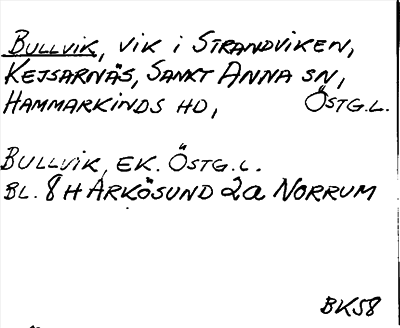 BULLVIK, VIK i STRANDVIKEN,
KEJSARNÄS, SANKT ANNA SN,
HAMMARKINDS HD, ÖSTG.L.
BULLVIK, EK. ÖSTG.L.
BL. 8 H ARKÖSUND 2a NORRUM
BK58